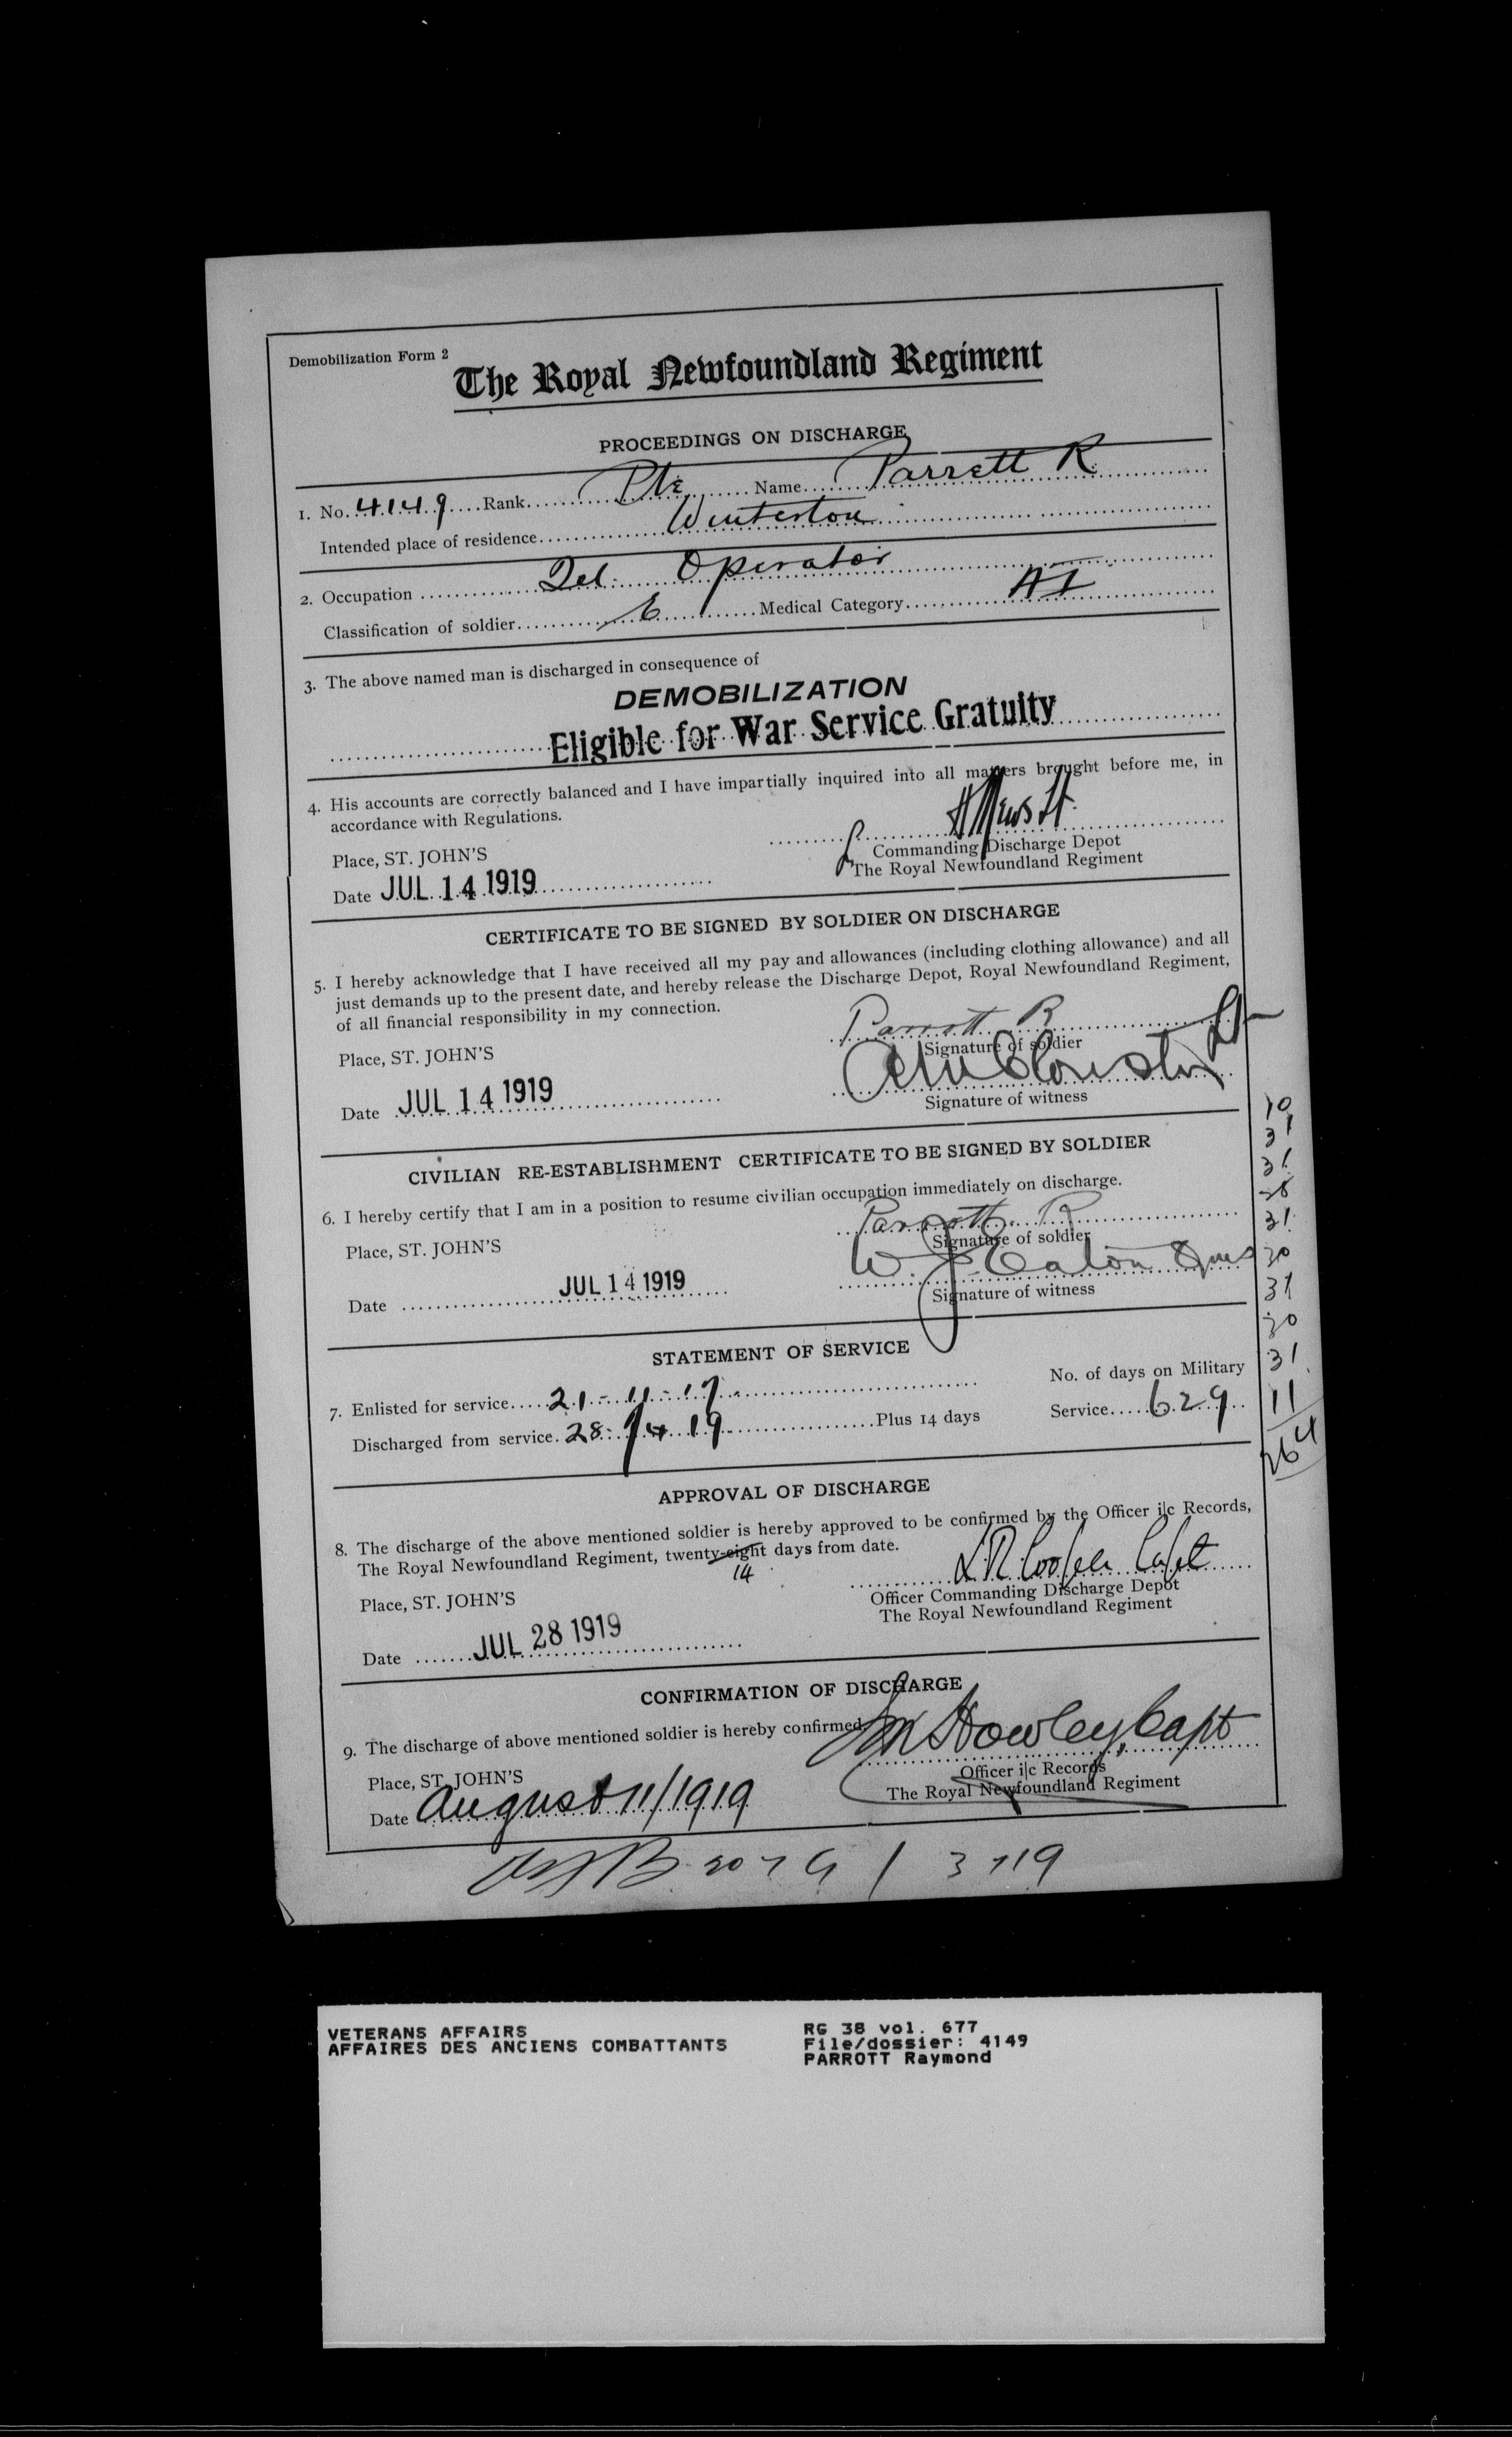 Demobilization Form 2
The Royal Newfoundland Regiment
PROCEEDINGS ON DISCHARGE
1. No. 4149 Rank Pte Name Parrett R.
Intended place of residence Winterton
2. Occupation Tel. Operator
Classification of soldier E Medical Category A1
3. The above named man is discharged in consequence of
DEMOBILIZATION
Eligible for War Service Gratuity
4. His accounts are correctly balanced and I have impartially inquired into all matters brought before me, in
accordance with Regulations.
Place, ST. JOHN'S
Commanding Discharge Depot
The Royal Newfoundland Regiment
Date JUL 14 1919
CERTIFICATE TO BE SIGNED BY SOLDIER ON DISCHARGE
5. I hereby acknowledge that I have received all my pay and allowances (including clothing allowance) and all
just demands up to the present date, and hereby release the Discharge Depot, Royal Newfoundland Regiment,
of all financial responsibility in my connection.
Parrott R
Place, ST. JOHN'S
Signature of soldier
Date JUL 14 1919
Signature of witness
CIVILIAN RE-ESTABLISHMENT CERTIFICATE TO BE SIGNED BY SOLDIER
6. I hereby certify that I am in a position to resume civilian occupation immediately on discharge.
Parrott R
Place, ST. JOHN'S
Signature of soldier
W. J. Eaton Qms
Date JUL 14 1919
Signature of witness
STATEMENT OF SERVICE
7. Enlisted for service 21-11-17 No. of days on Military
Discharged from service 28-7-19 Plus 14 days Service 629
10
31
31
28
31
30
31
30
31
11
264
APPROVAL OF DISCHARGE
8. The discharge of the above mentioned soldier is hereby approved to be confirmed by the Officer i|c Records,
The Royal Newfoundland Regiment, twenty-eight days from date.
14
L R Cooper Capt
Place, ST. JOHN'S
Officer Commanding Discharge Depot
The Royal Newfoundland Regiment
Date JUL 28 1919
CONFIRMATION OF DISCHARGE
9. The discharge of above mentioned soldier is hereby confirmed.
Howley, Capt
Place, ST. JOHN'S
Officer i|c Records
The Royal Newfoundland Regiment
Date August 11/1919
VETERANS AFFAIRS
AFFAIRES DES ANCIENS COMBATTANTS
RG 38 vol. 677
File/dossier: 4149
PARROTT Raymond